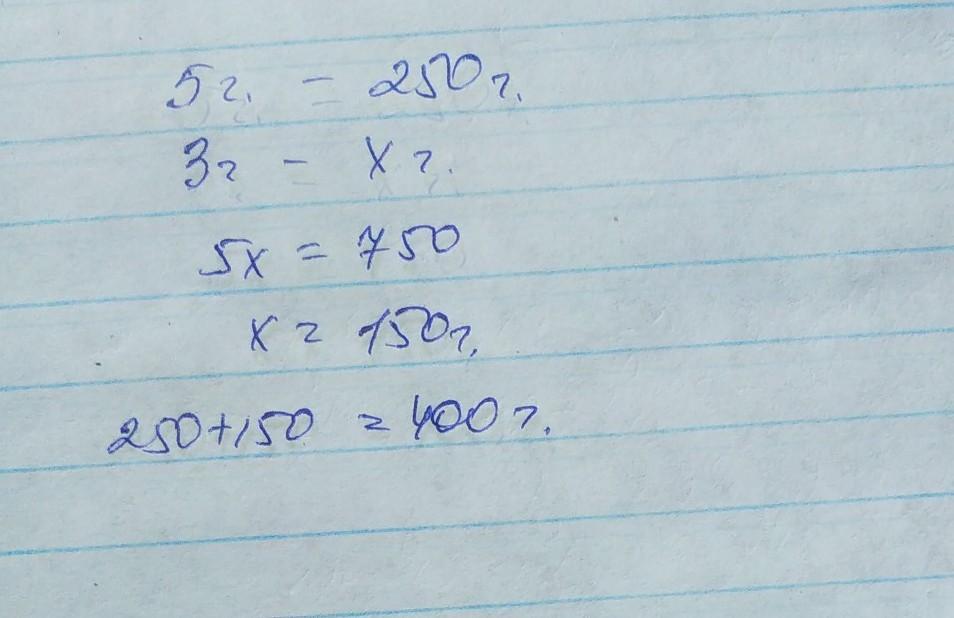 5г. - 250г.
3г - х г.
5х = 750
х = 150г.
250+150 = 400г.